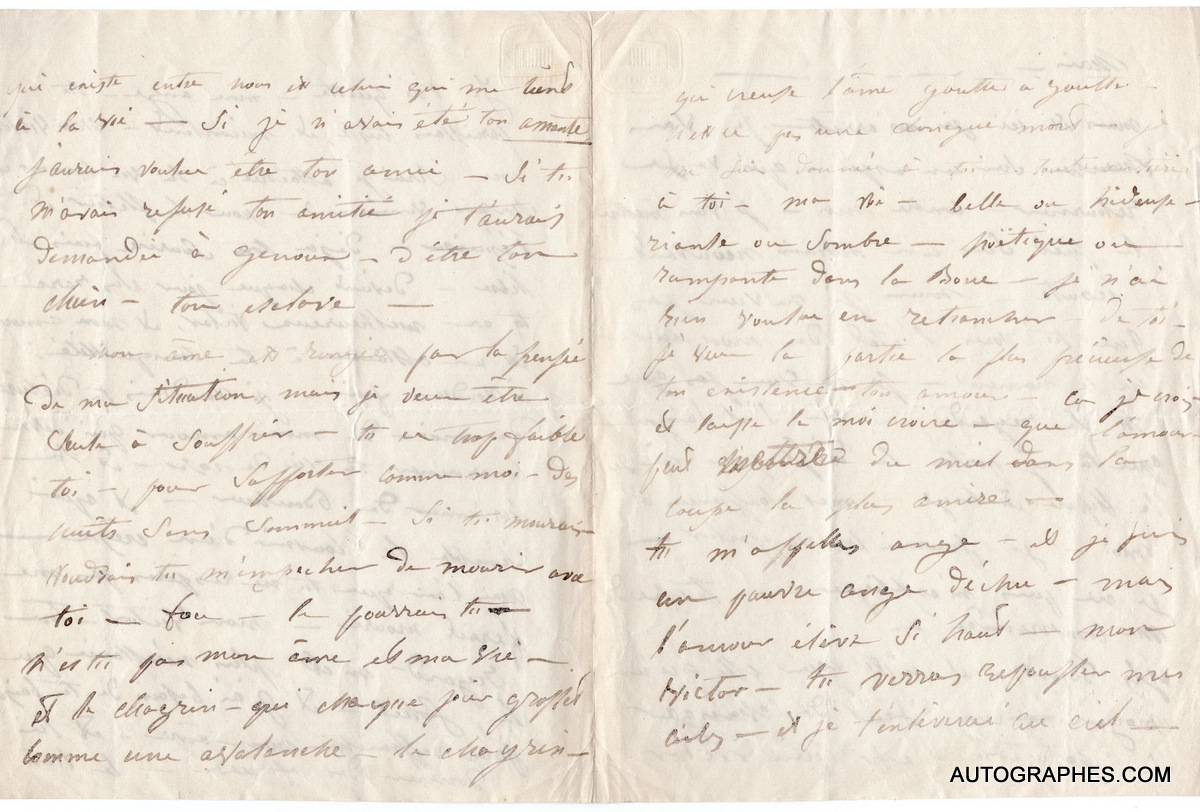 qui existe entre nous est celui qui me tiend
à la vie — Si je n'avais été ton amante
j'aurais voulue être ton amie — Si tu
m'avais refusé ton amitié je t'aurais
demandée à genoux — d'être ton
chien — ton esclave —
mon âme est rongée par la pensée
de ma situation mais je veux être
seule à souffrir — tu es trop faible
toi — pour supporter comme moi — des
nuits sans sommeil — Si tu mourais
voudrais tu m'empêcher de mourir avec
toi — fou — le pourrais tu —
n'es tu pas mon âme et ma vie —
Et le chagrin — qui chaque jour grossit
comme une avalanche — le chagrin —
qui creuse l'âme goutte à goutte —
n'est ce pas une longue mort — je
me suis donnée à toi toute entière
à toi — ma vie — belle ou hideuse —
riante ou sombre — poëtique ou
rampante dans la Boue — je n'ai
rien voulue en retrancher — de toi
je veux la partie la plus précieuse de
ton existence — ton amour — car je crois
et laisse le moi croire — que l'amour
peut mettre du miel dans la
coupe la plus amère —
tu m'appelles ange — et je suis
un pauvre ange déchu — mais
l'amour élève si haut — mon
Victor — tu verras repousser mes
ailes — et je t'enlèverai au ciel —
AUTOGRAPHES.COM